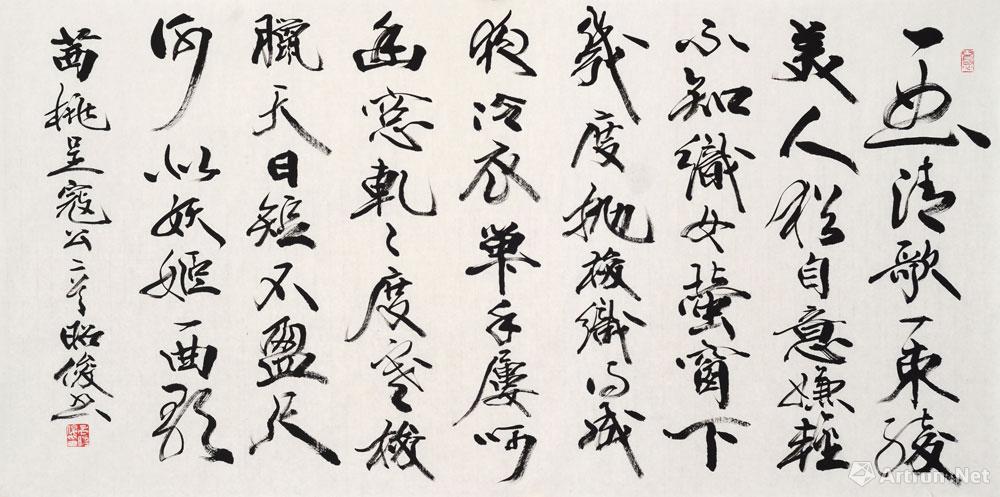 一曲清歌一束綾
美人猶自意嫌輕
不知織女螢窗下
幾度拋梭織得成
夜冷衣單手屢呵
幽窓軋々度寒梭
臘天日短不盈尺
何似妖姬一曲歌
茜桃呈寇公二首 昭俊書
Artron.Net